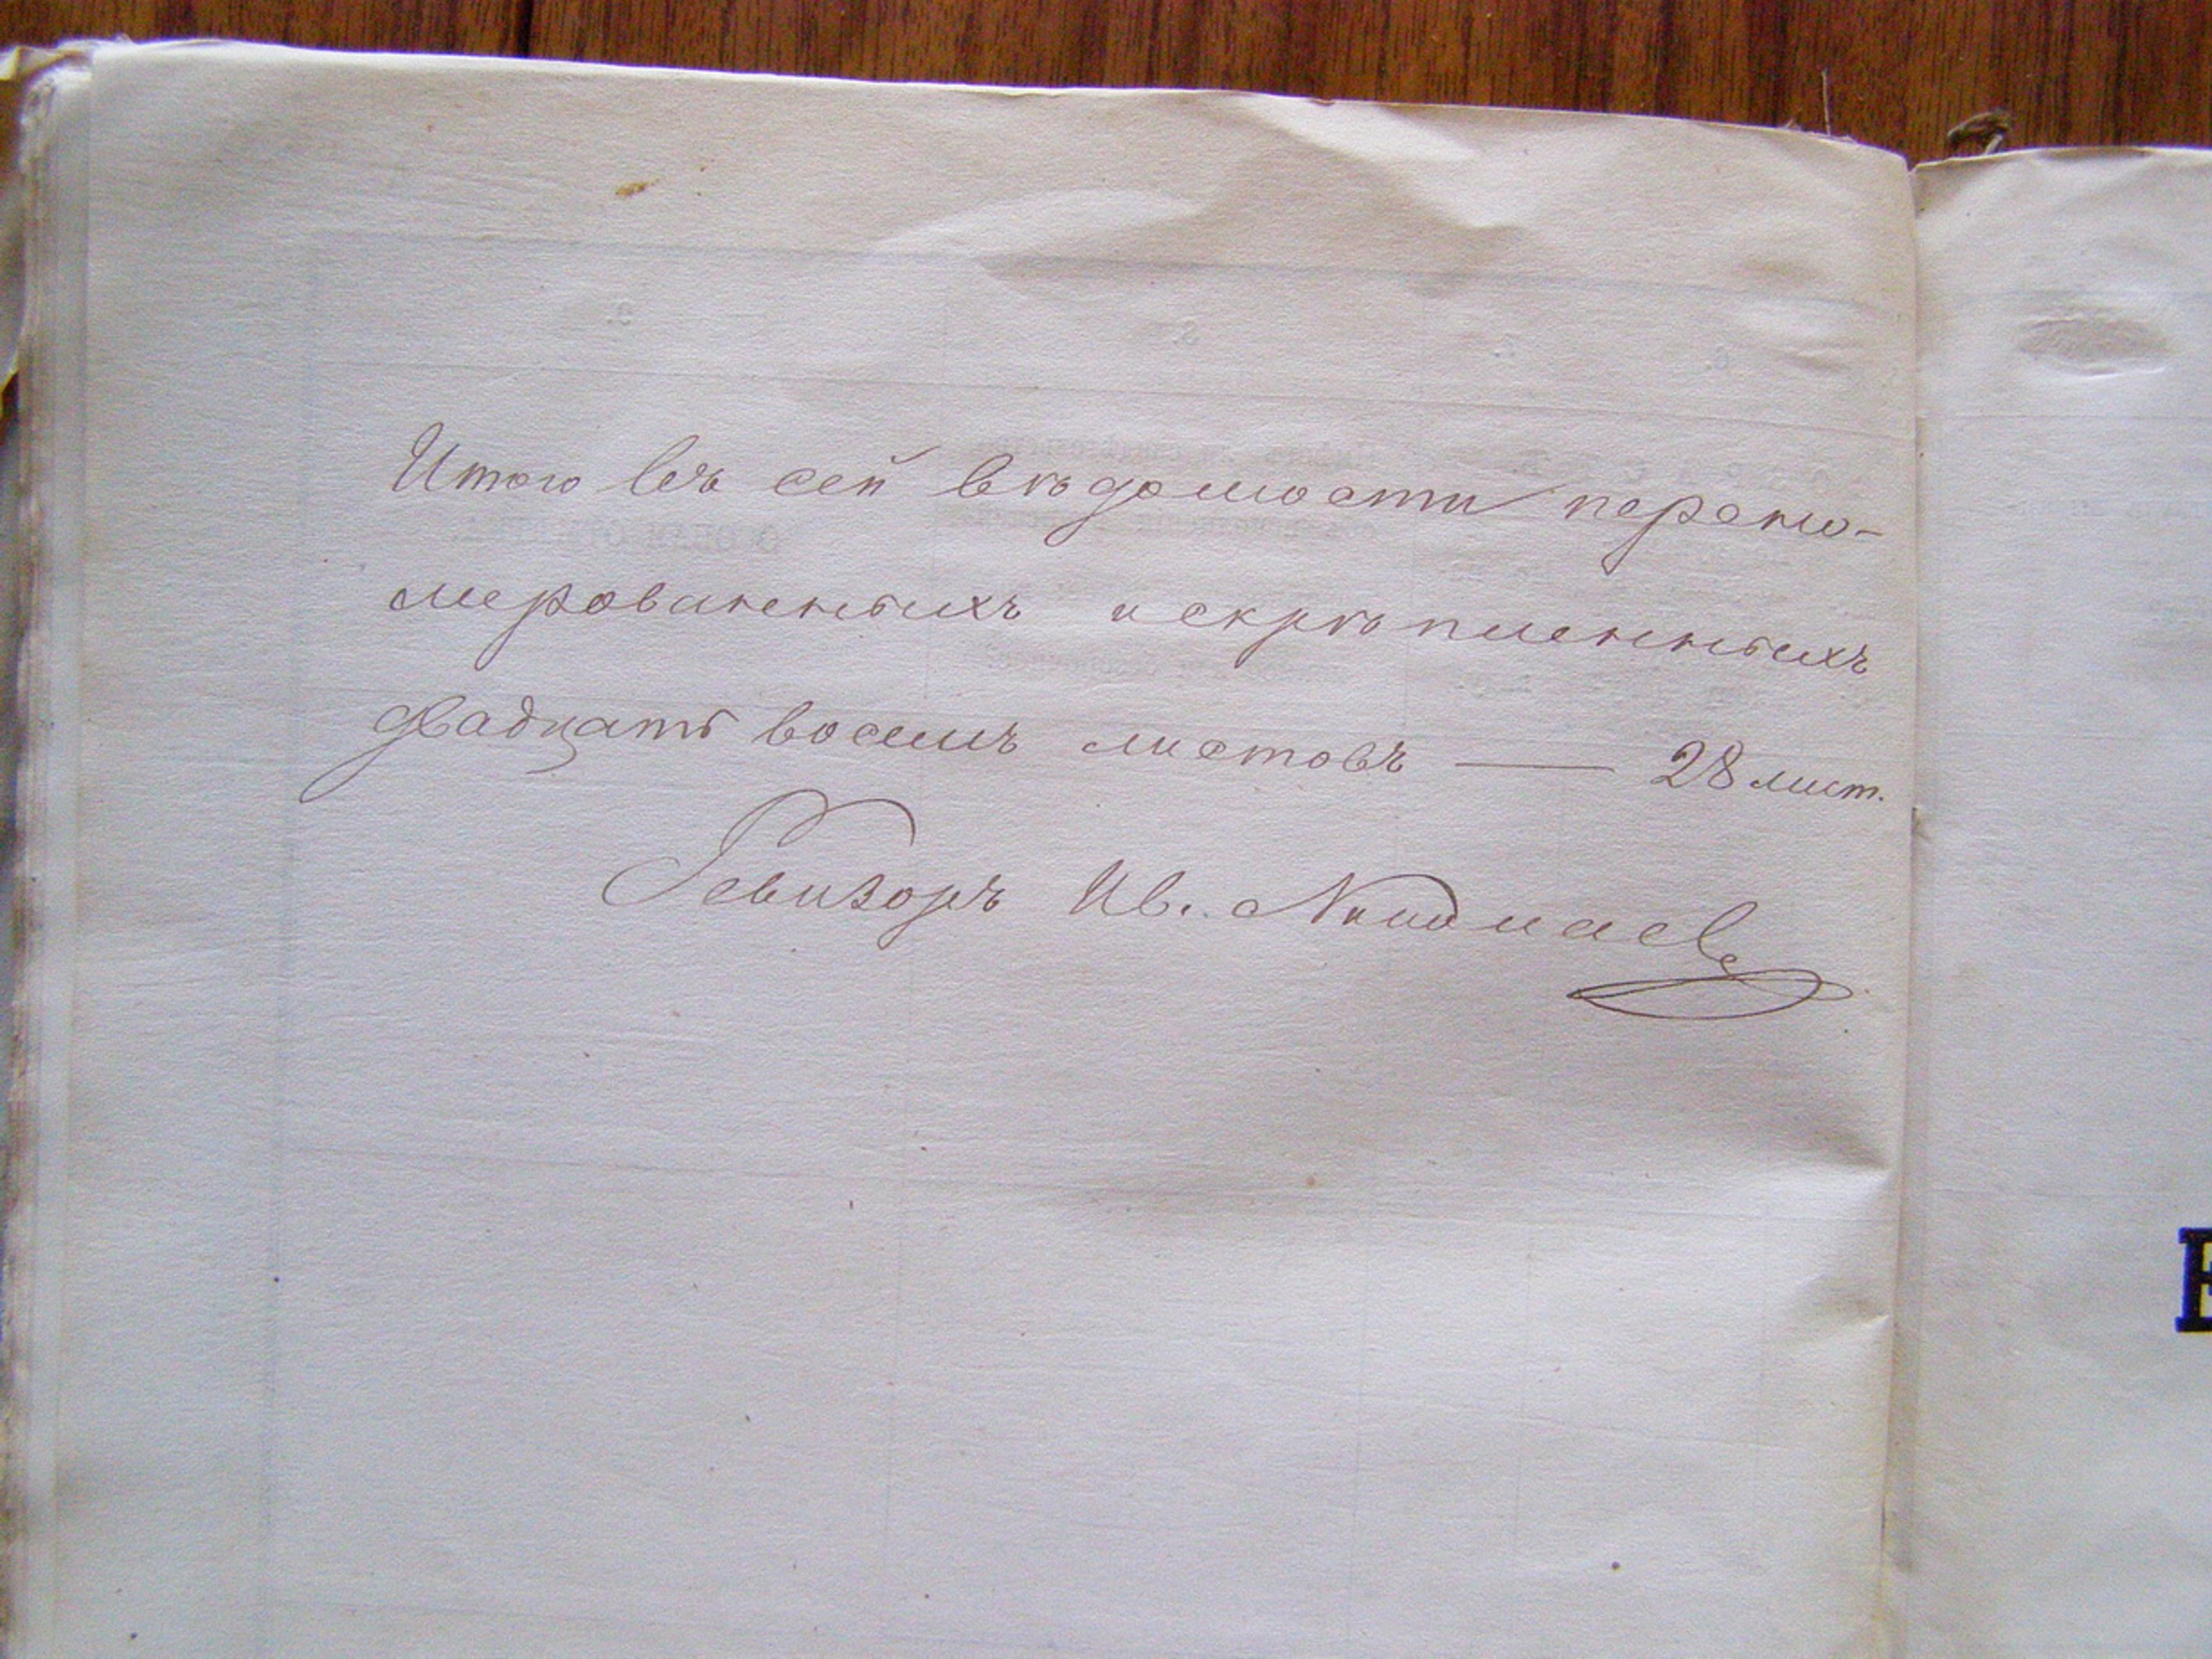 Итого въ сей вѣдомости перено-
мерованныхъ и скрѣпленныхъ
двадцать восемь листовъ — 28 лист.
Ревизоръ Ив.